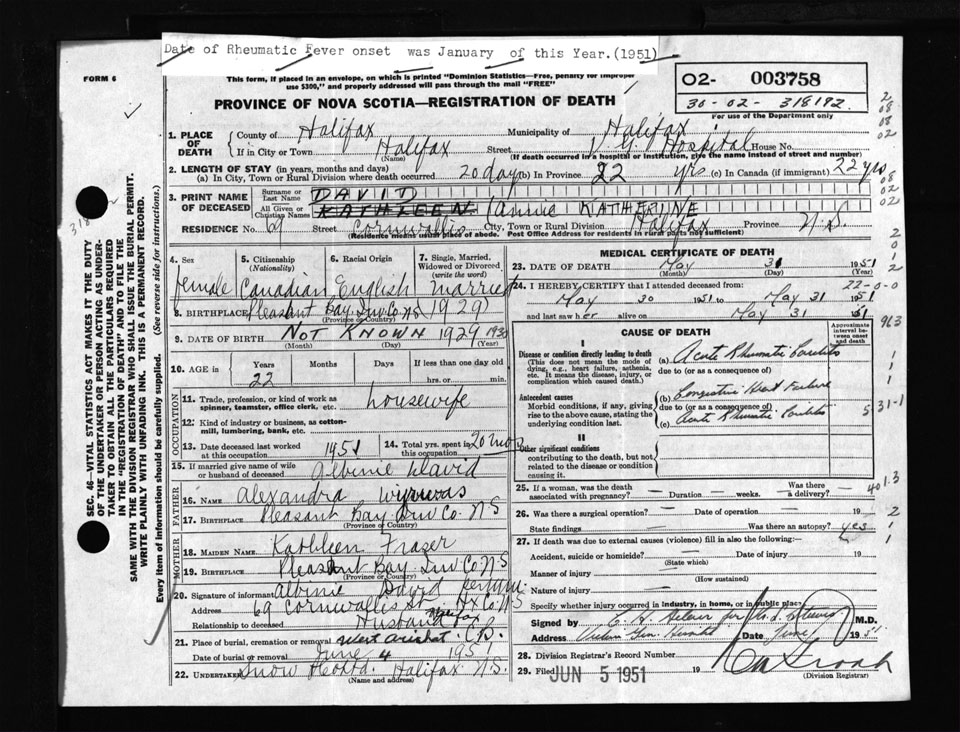 Date of Rheumatic Fever onset was January of this Year.(1951)
FORM 6
This form, if placed in an envelope, on which is printed "Dominion Statistics—Free, penalty for improper
use $300," and properly addressed will pass through the mail "FREE"
O2- 003758
30-02-318192
For use of the Department only
PROVINCE OF NOVA SCOTIA—REGISTRATION OF DEATH
1. PLACE OF DEATH
County of Halifax Municipality of Halifax
If in City or Town Halifax Street V.G. Hospital House No.
(Name) (If death occurred in a hospital or institution, give the name instead of street and number)
2. LENGTH OF STAY (in years, months and days)
(a) In City, Town or Rural Division where death occurred 20 days (b) In Province 22 yrs (c) In Canada (if immigrant) 22 yrs
3. PRINT NAME OF DECEASED
Surname or Last Name DAVID
All Given or Christian Names KATHLEEN (Annie KATHERINE
RESIDENCE No. 69 Street Cornwallis City, Town or Rural Division Halifax Province N.S.
(Residence means usual place of abode. Post Office Address for residents in rural parts not sufficient)
4. Sex
female
5. Citizenship (Nationality)
Canadian
6. Racial Origin
English
7. Single, Married, Widowed or Divorced (write the word)
married
8. BIRTHPLACE Pleasant Bay Inv. Co. N.S. 1929)
(Province or Country)
9. DATE OF BIRTH NOT KNOWN 1929 1930
(Month) (Day) (Year)
10. AGE in Years Months Days If less than one day old
22 hrs. or min.
OCCUPATION
11. Trade, profession, or kind of work as spinner, teamster, office clerk, etc. housewife
12. Kind of industry or business, as cotton-mill, lumbering, bank, etc.
13. Date deceased last worked at this occupation 1951
14. Total yrs. spent in this occupation 20 mo
15. If married give name of wife or husband of deceased Albinie David
FATHER
16. Name Alexandra
17. BIRTHPLACE Pleasant Bay Inv Co. N S
(Province or Country)
MOTHER
18. MAIDEN NAME Kathleen Frazer
19. BIRTHPLACE Pleasant Bay Inv Co N S
(Province or Country)
20. Signature of informant Albinie David
Address 69 Cornwallis St Hx Co. N S
Relationship to deceased Husband
21. Place of burial, cremation or removal West Arichat C.B.
Date of burial or removal June 4 1951
22. UNDERTAKER Snow Halifax N.S.
(Name and address)
MEDICAL CERTIFICATE OF DEATH
23. DATE OF DEATH May 31 1951
(Month) (Day) (Year)
24. I HEREBY CERTIFY that I attended deceased from: 22-0-0
May 30 1951 to May 31 1951
and last saw her alive on May 31 51
CAUSE OF DEATH
Approximate interval between onset and death
I
Disease or condition directly leading to death
(This does not mean the mode of dying, e.g., heart failure, asthenia, etc. It means the disease, injury, or complication which caused death.)
(a) Acute Rheumatic Carditis
due to (or as a consequence of)
Antecedent causes
Morbid conditions, if any, giving rise to the above cause, stating the underlying condition last.
(b) Congestive Heart Failure
due to (or as a consequence of)
(c) Acute Rheumatic Carditis
II
Other significant conditions
contributing to the death, but not related to the disease or condition causing it.
25. If a woman, was the death associated with pregnancy? — Duration — weeks. Was there a delivery? —
26. Was there a surgical operation? — Date of operation — 19
State findings — Was there an autopsy? yes
27. If death was due to external causes (violence) fill in also the following:
Accident, suicide or homicide? — Date of injury — 19
(State which)
Manner of injury —
(How sustained)
Nature of injury —
Specify whether injury occurred in industry, in home, or in public place
Signed by M.D.
Address Date June 1 1951
28. Division Registrar's Record Number
29. Filed JUN 5 1951 19
(Division Registrar)
SEC. 46—VITAL STATISTICS ACT MAKES IT THE DUTY
OF THE UNDERTAKER OR PERSON ACTING AS UNDER-
TAKER TO OBTAIN ALL THE PARTICULARS REQUIRED
IN THE "REGISTRATION OF DEATH" AND TO FILE THE
SAME WITH THE DIVISION REGISTRAR WHO SHALL ISSUE THE BURIAL PERMIT.
WRITE PLAINLY WITH UNFADING INK. THIS IS A PERMANENT RECORD.
Every item of information should be carefully supplied. (See reverse side for instructions.)